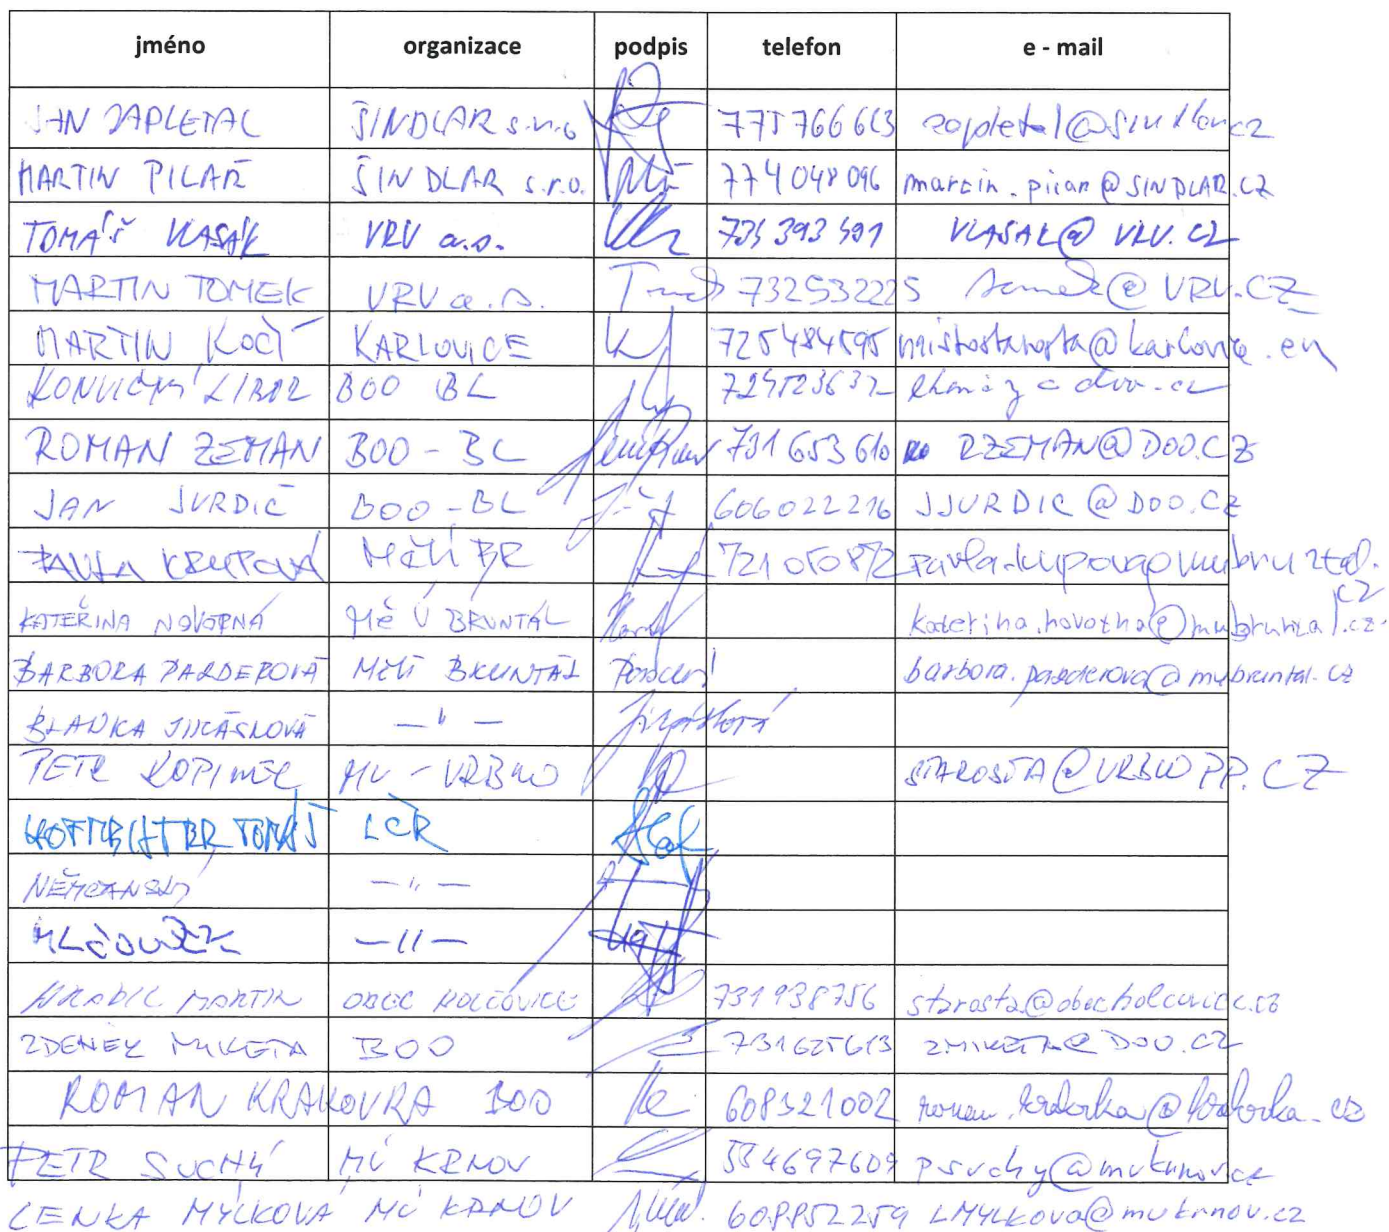 jméno organizace podpis telefon e - mail
JAN ZAPLETAL ŠINDLAR s.r.o 775 766 663 zapletal@sindlar.cz
MARTIN PILAŘ ŠINDLAR s.r.o. 774 048 096 martin.pilar@SINDLAR.CZ
TOMÁŠ VLASÁK VRV a.s. VLASAK@VRV.CZ
MARTIN TOMEK VRV a.s. 732532225 tomek@VRV.CZ
MARTIN KOČÍ KARLOVICE 725484595 mistostarosta@karlovice.eu
LIBOR BOO BL 724523632
ROMAN ZEMAN BOO - BL 731 653 610 RZEMAN@DOO.CZ
JAN JURDIČ BOO - BL 606022216 JJURDIC@DOO.CZ
PAVLA KRUPOVÁ MěÚ BR 721 050 872
KATEŘINA NOVOTNÁ Mě Ú BRUNTÁL katerina.novotna@mubruntal.cz
BARBORA PAZDEROVÁ MěÚ BRUNTÁL barbora.pazderova@mubruntal.cz
BLANKA JIRÁSKOVÁ — " —
PETR KOPÍNEC MÚ - VRBNO STAROSTA@VRBNOPP.CZ
TOMÁŠ LČR
NĚMČANSKÝ — " —
— " —
MARTIN OBEC HOLČOVICE 731938756 starosta@obecholcovice.cz
ZDENEK MIKETA BOO 731625613 ZMIKETA@DOO.CZ
ROMAN KRAKOVKA BOO 608321002 roman.krakovka@krakovka.cz
PETR SUCHÝ MÚ KRNOV 554697609 psuchy@mukrnov.cz
LENKA MÝLKOVÁ MÚ KRNOV 608852259 LMYLKOVA@mukrnov.cz